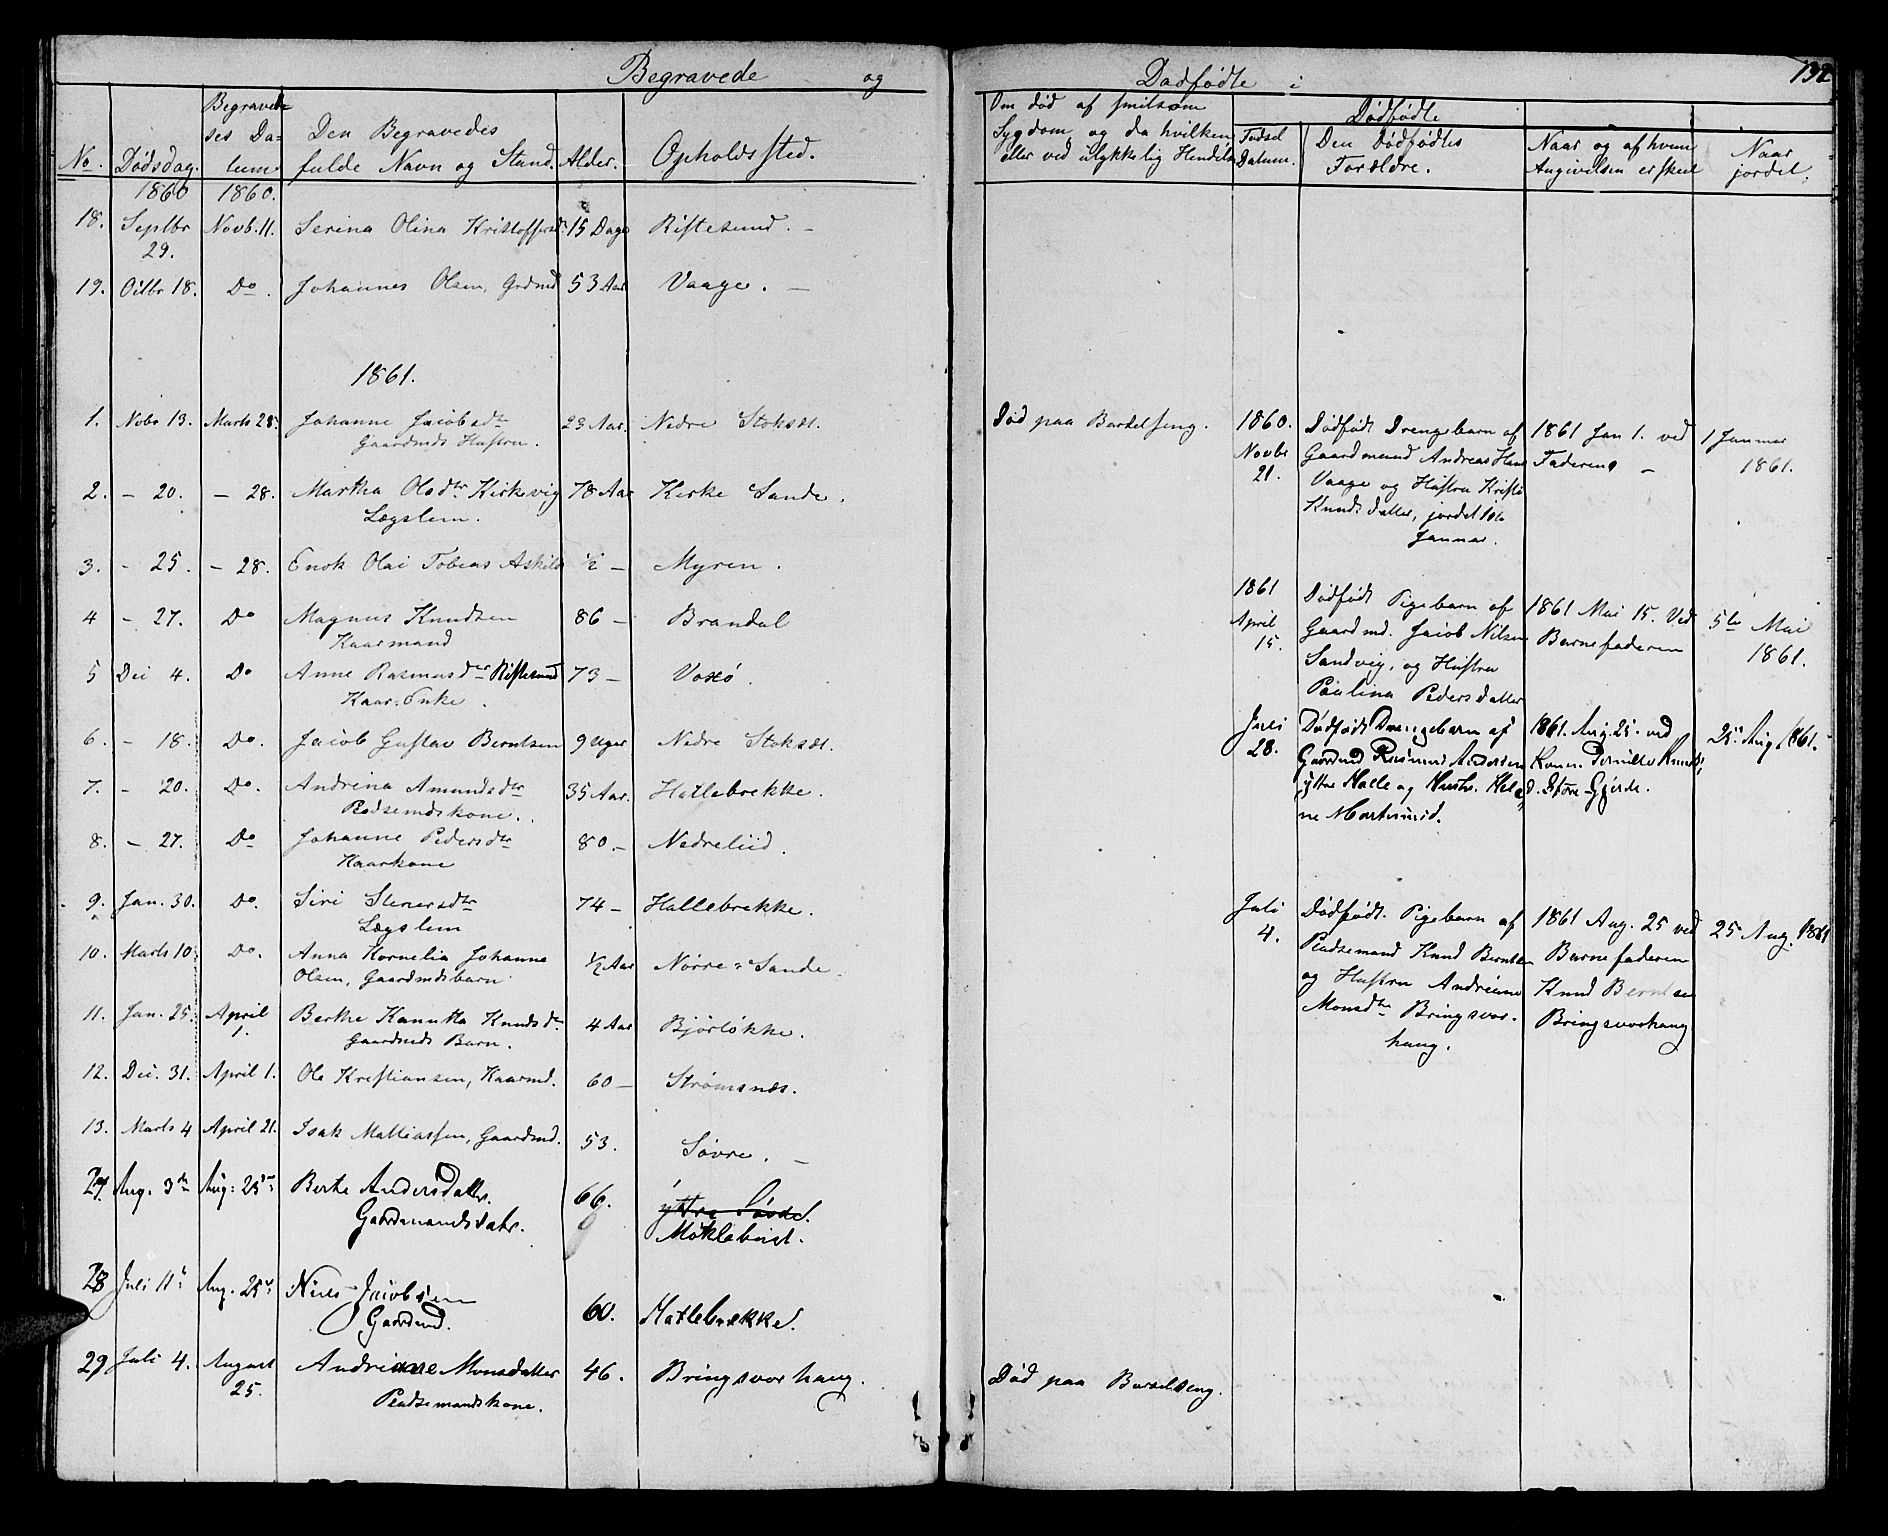 Begravede og
Dødfødte i
132
No.
Dødsdag.
Begravel-
ses Da-
tum
Den Begravedes
fulde Navn og Stand.
Alder.
Opholdssted.
Om død af smitsom
Sygdom og da hvilken
eller ved ulykkelig Hendelse
Dødfødte
Fødsel
Datum.
Den Dødfødtes
Forældre.
Naar og af hvem
Angivelsen er skeet
Naar
jordet.
1860 1860.
18. Septbr Novb. 11. Serina Olina Kristoffersd. 15 Dage Riftesund. –
29.
19. Octbr 18. Do. Johannes Olsen, Grdmd 53 Aar Vaage. –
1861.
1. Nobr 13. Marts 28. Johanne Jacobsdtr 23 Aar. Nedre Stoksæt.
Gaardmds Hustru.
2. – 20. – 28. Martha Olsdtr Kirkevig 78 Aar Kirke Sande.
Lægslem.
3. – 25. – 28. Enok Olai Tobias Askilds ½ – Myren.
4 – 27. Do Magnus Knudsen 86 – Brandal
Kaarmand
5 Dec 4. Do Anne Rasmusdtr Riftesund 73 – Voxø.
Kaar-Enke.
6. – 18. Do. Jacob Gustav Berntsen 9 Uger Nedre Stoksæt.
7. – 20. Do. Andrina Amundsdtr 35 Aar. Hatlebrekke.
Pladsemdskone.
8. – 27. Do Johanne Pedersdtr 80. – Nedreliid.
Kaarkone
9. Jan. 30. Do. Siri Stenersdtr 74 – Hallebrekke.
Lægslem
10. Marts 10. Do. Anna Kornelia Johanne ½ Aar Nørre-Sande.
Olsen, Gaardmdsbarn
11. Jan. 25. April Berthe Kanutta Knudsdtr 4 Aar Bjørløkke.
1. Gaardmds Barn.
12. Dec. 31. April 1. Ole Kristiansen, Kaarmd. 60 – Strømsnæs.
13. Marts 4 April 21. Isak Mattiassen, Gaardmd. 53. Søvre. –
27. Aug. 3de Aug: 25de Berthe Andersdatter. 66. ytre Søvde.
Gaardmandsdatr. Møklebust.
28 Juli 11te Aug. 25de Niels Jacobsen 60. Hatlebrekke.
Gaardmd.
29 Juli 4. August Andriane Monsdatter 46. Bringsvorhaug.
25. Pladsemandskone.
Død paa Barselseng.
1860.
Novbr
21.
Dødfødt Drengebarn af
Gaardmand Andreas Hans
Vaage og Hustru Kristi
Knudsdatter, jordet 1ste
Januar.
1861 Jan 1. ved
Faderen –
1 Januar
1861.
1861
April
15.
Dødfødt Pigebarn af
Gaardmd. Jacob Nilsen
Sandvig, og Hustru
Paulina Pedersdatter
1861 Mai 15. Ved
Barnefaderen
5te Mai
1861.
Juli
28.
Dødfødt Drengebarn af
Gaardmd Rasmus Andersen
ytre Halle og Hustr. Hele
ne Martinusd.
1861. Aug. 25. ved
Konen Pernille Knuds
d. Støre-Gjerde.
25de Aug. 1861.
Juli
4.
Dødfødt Pigebarn af
Pladsemand Knud Berntsen
og Hustru Andriane
Monsdtr Bringsvor-
haug.
1861 Aug. 25 ved
Barnefaderen
Knud Berntsen
Bringsvorhaug
25 Aug. 1861
Død paa Barselseng.